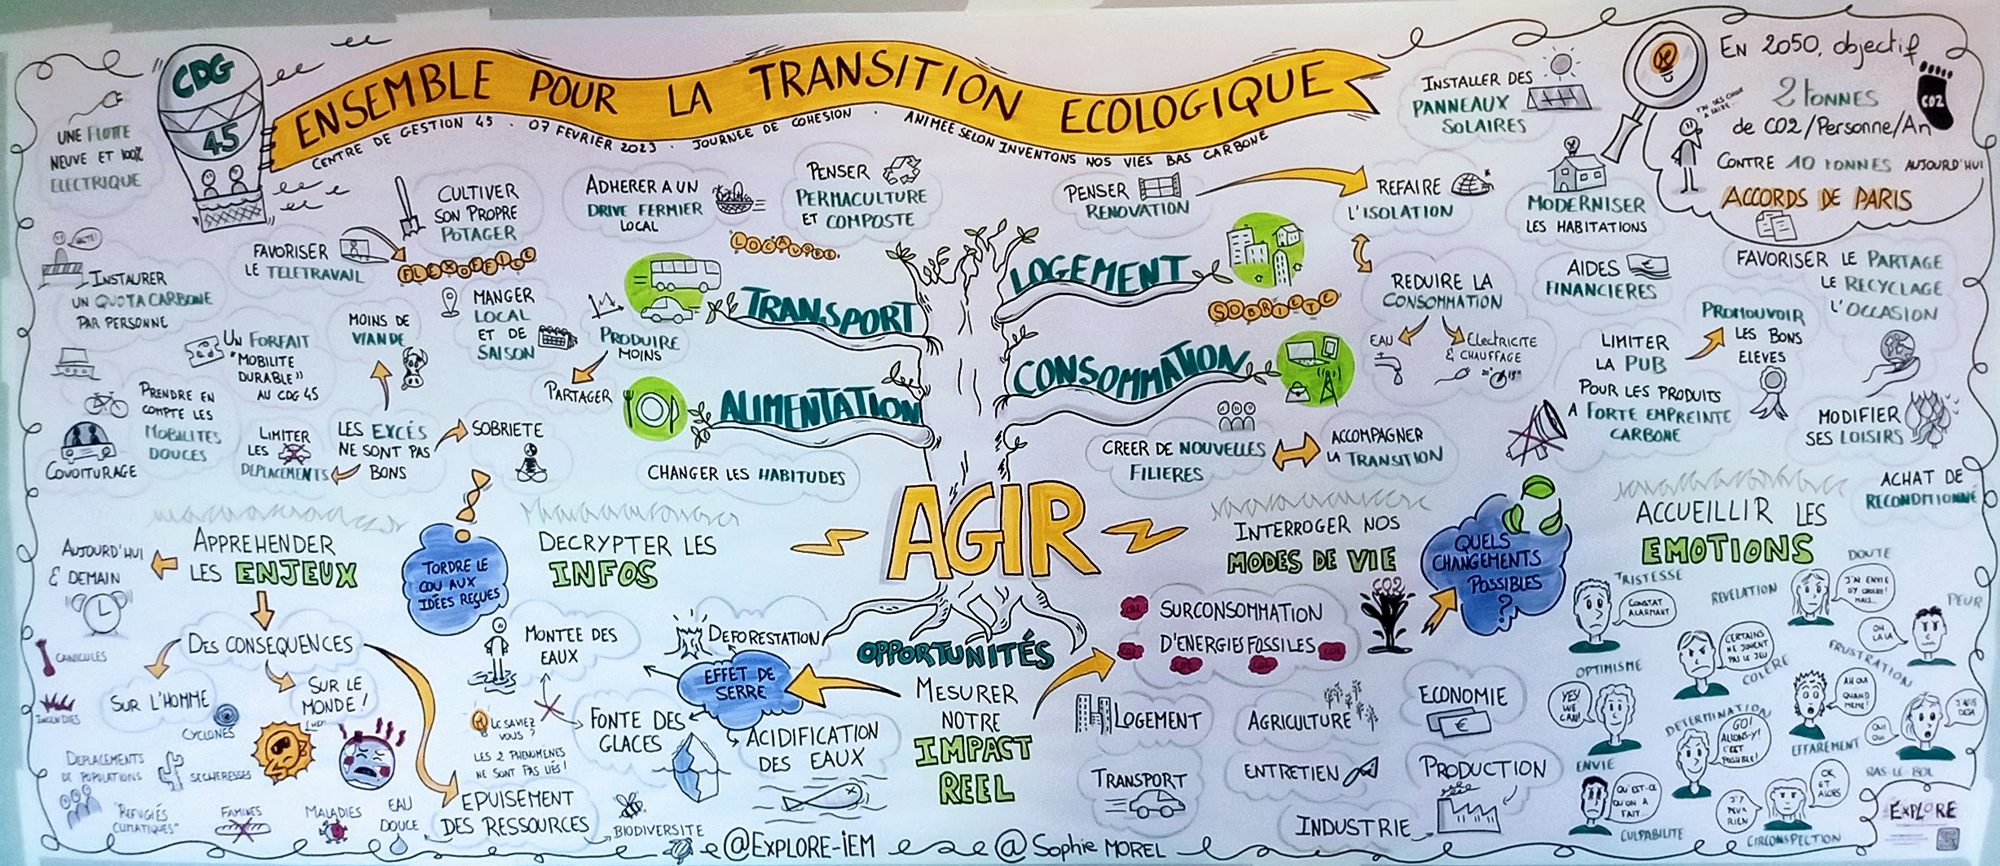 CDG
45
ENSEMBLE POUR LA TRANSITION ECOLOGIQUE
CENTRE DE GESTION 45 . 07 FEVRIER 2023 . JOURNEE DE COHESION . ANIMEE SELON INVENTONS NOS VIES BAS CARBONE
UNE FLOTTE
NEUVE ET 100%
ELECTRIQUE
INSTAURER
UN QUOTA CARBONE
PAR PERSONNE
FAVORISER
LE TELETRAVAIL
FLEXOFFICE
CULTIVER
SON PROPRE
POTAGER
ADHERER A UN
DRIVE FERMIER
LOCAL
LOCAVORE
PENSER
PERMACULTURE
ET COMPOSTE
UN FORFAIT
"MOBILITE
DURABLE"
AU CDG 45
MOINS DE
VIANDE
MANGER
LOCAL
ET DE
SAISON
PRODUIRE
MOINS
PARTAGER
PRENDRE EN
COMPTE LES
MOBILITES
DOUCES
COVOITURAGE
LIMITER
LES
DEPLACEMENTS
LES EXCÉS
NE SONT PAS
BONS
SOBRIETE
CHANGER LES HABITUDES
TRANSPORT
ALIMENTATION
LOGEMENT
CONSOMMATION
PENSER
RENOVATION
REFAIRE
L'ISOLATION
SOBRIETE
REDUIRE LA
CONSOMMATION
EAU
Electricite
& CHAUFFAGE
INSTALLER DES
PANNEAUX
SOLAIRES
MODERNISER
LES HABITATIONS
AIDES
FINANCIERES
EN 2050, objectif
2 tonnes
de CO2/Personne/An
CONTRE 10 TONNES AUJOURD'HUI
ACCORDS DE PARIS
CO2
FAVORISER LE PARTAGE
LE RECYCLAGE
L'OCCASION
LIMITER
LA PUB
POUR LES PRODUITS
A FORTE EMPREINTE
CARBONE
PROMOUVOIR
LES BONS
ELEVES
MODIFIER
SES LOISIRS
ACHAT DE
RECONDITIONNE
CREER DE NOUVELLES
FILIERES
ACCOMPAGNER
LA TRANSITION
AGIR
APPREHENDER
LES ENJEUX
AUJOURD'HUI
& DEMAIN
DES CONSEQUENCES
SUR L'HOMME
SUR LE
MONDE!
CANICULES
INCENDIES
CYCLONES
DEPLACEMENTS
DE POPULATIONS
SECHERESSES
"REFUGIÉS
CLIMATIQUES"
FAMINES
MALADIES
EAU
DOUCE
EPUISEMENT
DES RESSOURCES
BIODIVERSITE
TORDRE LE
COU AUX
IDÉES REÇUES
DECRYPTER LES
INFOS
MONTEE DES
EAUX
DEFORESTATION
EFFET DE
SERRE
LE SAVIEZ
VOUS?
LES 2 PHENOMÈNES
NE SONT PAS LIÉS!
FONTE DES
GLACES
ACIDIFICATION
DES EAUX
OPPORTUNITÉS
MESURER
NOTRE
IMPACT
REEL
INTERROGER NOS
MODES DE VIE
QUELS
CHANGEMENTS
POSSIBLES
?
SURCONSOMMATION
D'ENERGIES FOSSILES
CO2
LOGEMENT
AGRICULTURE
ECONOMIE
TRANSPORT
ENTRETIEN
PRODUCTION
INDUSTRIE
ACCUEILLIR LES
EMOTIONS
TRISTESSE
CONSTAT
ALARMANT
REVELATION
DOUTE
J'AI ENVIE
D'Y CROIRE!
MAIS...
PEUR
OH
LA LA
OPTIMISME
YES!
WE
CAN!
CERTAINS
NE JOUENT
PAS LE JEU
COLÈRE
FRUSTRATION
AH OUI
QUAND
MEME!
EFFAREMENT
OUI
OUI
J'AGIS
DEJA
DETERMINATION
GO!
ALLONS-Y!
C'EST
POSSIBLE!
RAS LE BOL
ENVIE
QU'EST-CE
QU'ON A
FAIT
CULPABILITE
J'Y
PEUX
RIEN
OK
ET
ALORS
CIRCONSPECTION
EXPLORE
@EXPLORE-IEM
@ Sophie MOREL